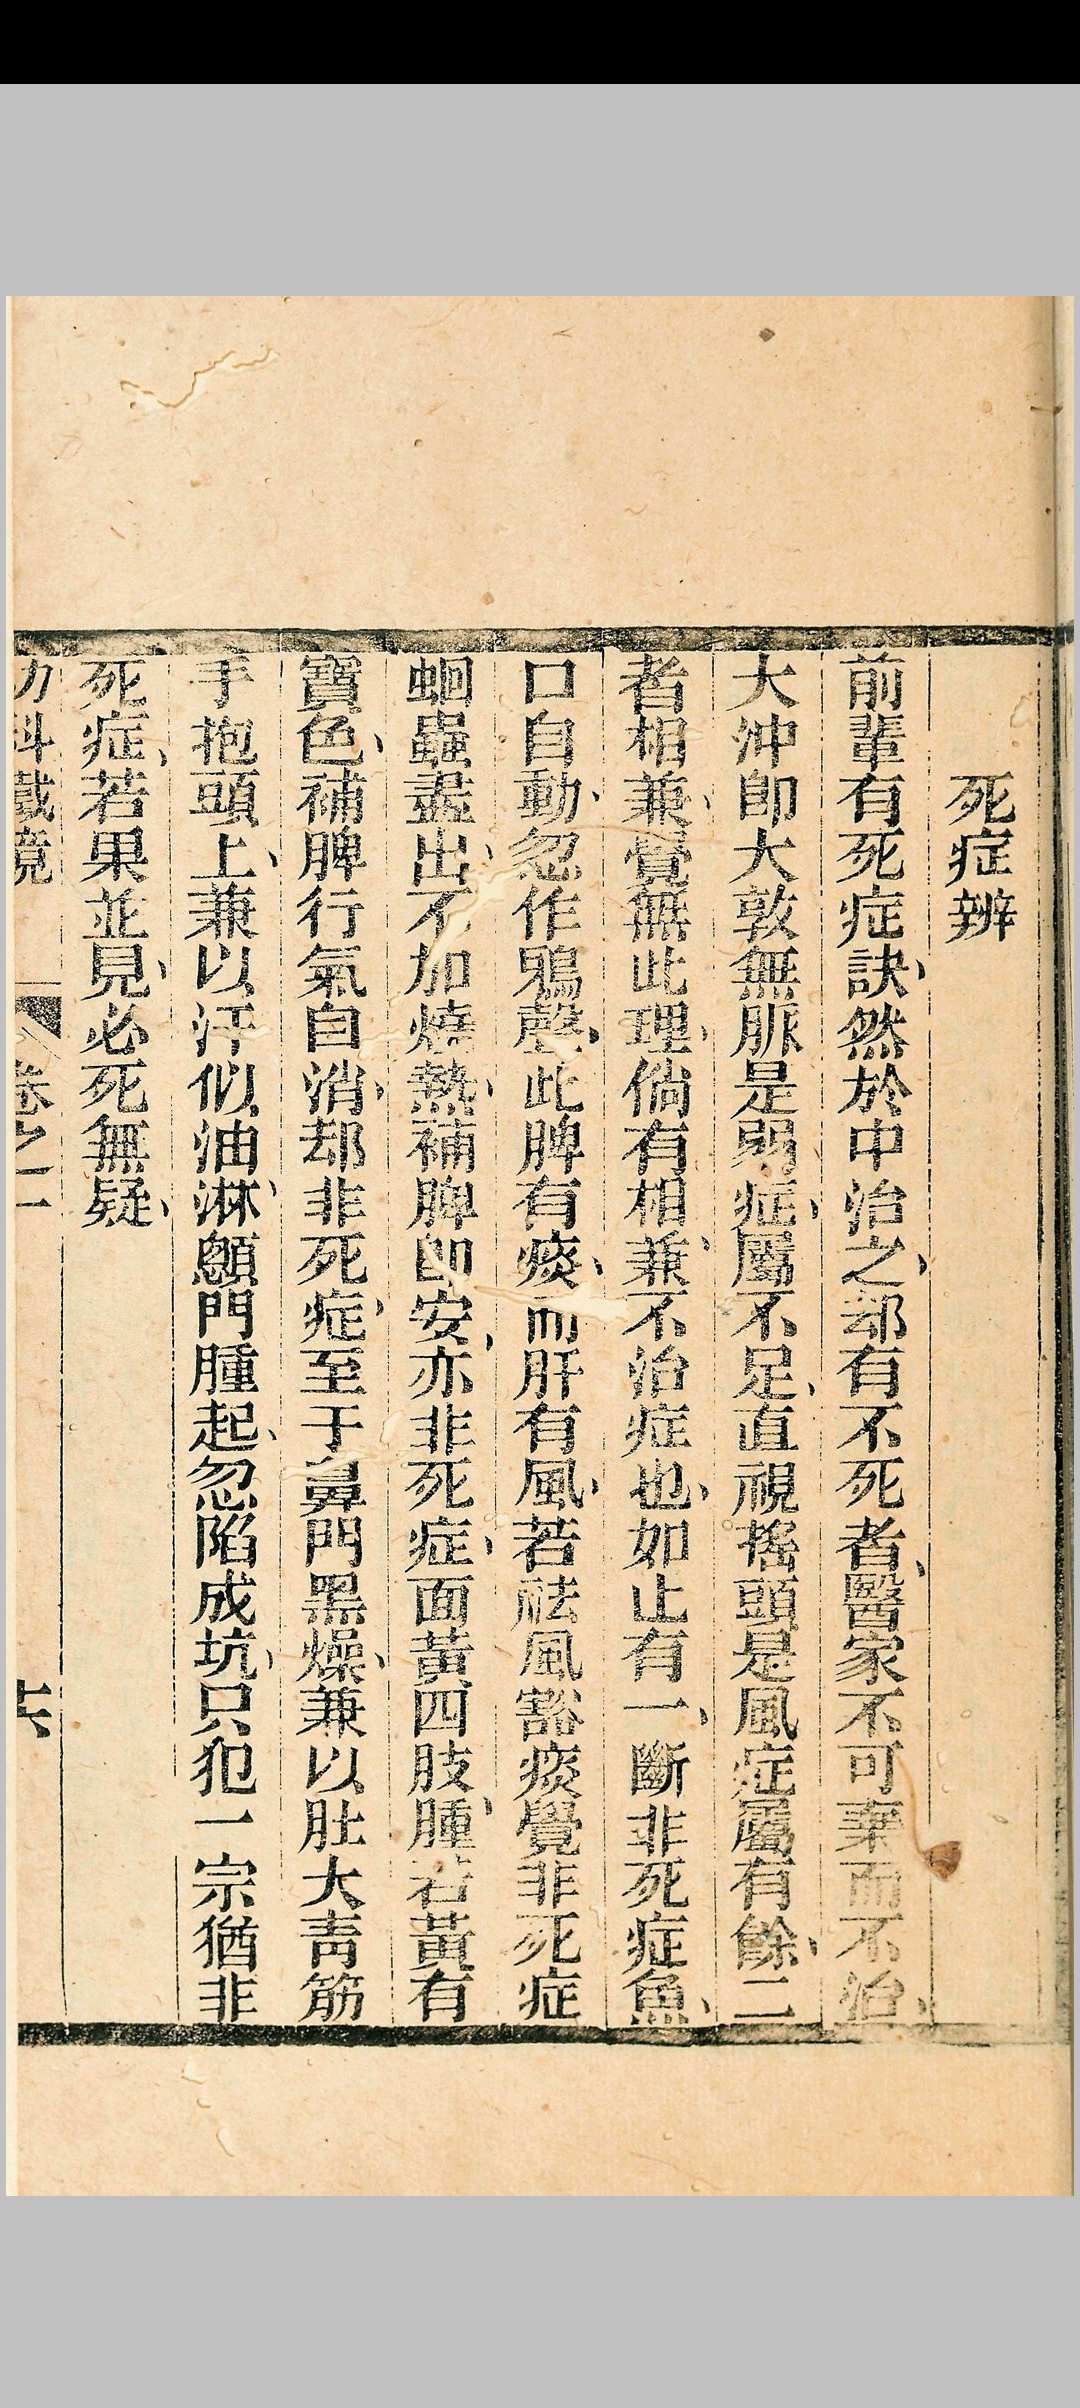 死症辨
前輩有死症訣、然於中治之、却有不死者、醫家不可棄而不治、
大沖卽大敦無脈是弱症、屬不足、直視搖頭是風症屬有餘、二
者相兼、覺無此理、倘有相兼、不治症也、如止有一、斷非死症、魚
口自動、忽作鴉聲、此脾有痰、而肝有風、若祛風豁痰覺非死症
蛔蟲盡出、不加燒熱、補脾卽安、亦非死症、面黃四肢腫、若黃有
寶色、補脾行氣自消、却非死症、至于鼻門黑燥、兼以肚大靑筋
手抱頭上、兼以汗似油淋、顖門腫起、忽陷成坑、只犯一宗猶非
死症、若果並見、必死無疑、
幼科鐵鏡
卷之一